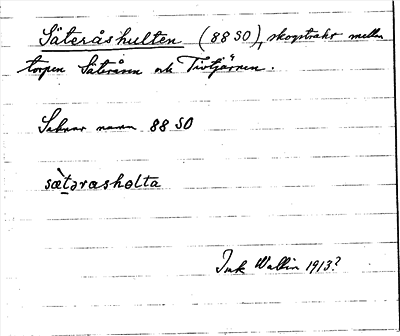 Säteråshulten (88 SO), skogstrakt mellan
torpen Säteråsen och Tivtjärnen.
Saknar namn 88 SO
sæ̀tərashɵlta
Ink Wallin 1913?